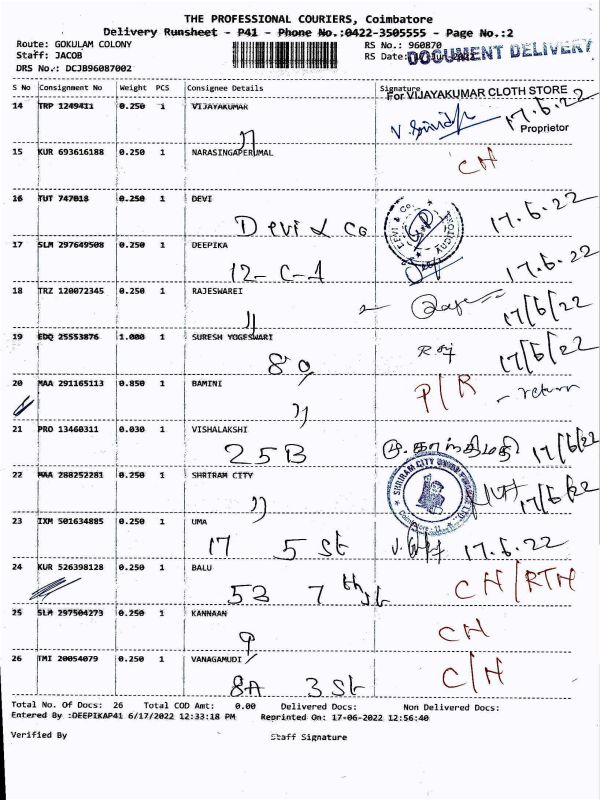 THE PROFESSIONAL COURIERS, Coimbatore
Delivery Runsheet - P41 - Phone No.:0422-3505555 - Page No.:2
Route: GOKULAM COLONY RS No.: 960870
Staff: JACOB RS Date: Jun 2022
DOCUMENT DELIVERY
DRS No.: DCJB96087002
S No Consignment No Weight PCS Consignee Details Signature
For VIJAYAKUMAR CLOTH STORE
14 TRP 1249411 0.250 1 VIJAYAKUMAR 17.6.22
Proprietor
15 KUR 693616188 0.250 1 NARASINGAPERUMAL
CH
16 TUT 747018 0.250 1 DEVI 17.6.22
Devi & Co
17 SLM 297649508 0.250 1 DEEPIKA 17.6.22
12-C-1
18 TRZ 120072345 0.250 1 RAJESWAREI 17/6/22
19 EDQ 25553876 1.000 1 SURESH YOGESWARI 17/6/22
20 MAA 291165113 0.850 1 BAMINI P/R - return
21 PRO 13460311 0.030 1 VISHALAKSHI 17/6/22
25B
22 MAA 288252281 0.250 1 SHRIRAM CITY 17/6/22
23 IXM 501634885 0.250 1 UMA
17 5 St 17.6.22
24 KUR 526398128 0.250 1 BALU CH/RTN
53 7th St
25 SLM 297504273 0.250 1 KANNAAN CH
26 TMI 20054079 0.250 1 VANAGAMUDI C/H
8A 3 St
Total No. Of Docs: 26 Total COD Amt: 0.00 Delivered Docs: Non Delivered Docs:
Entered By :DEEPIKAP41 6/17/2022 12:33:18 PM Reprinted On: 17-06-2022 12:56:40
Verified By Staff Signature